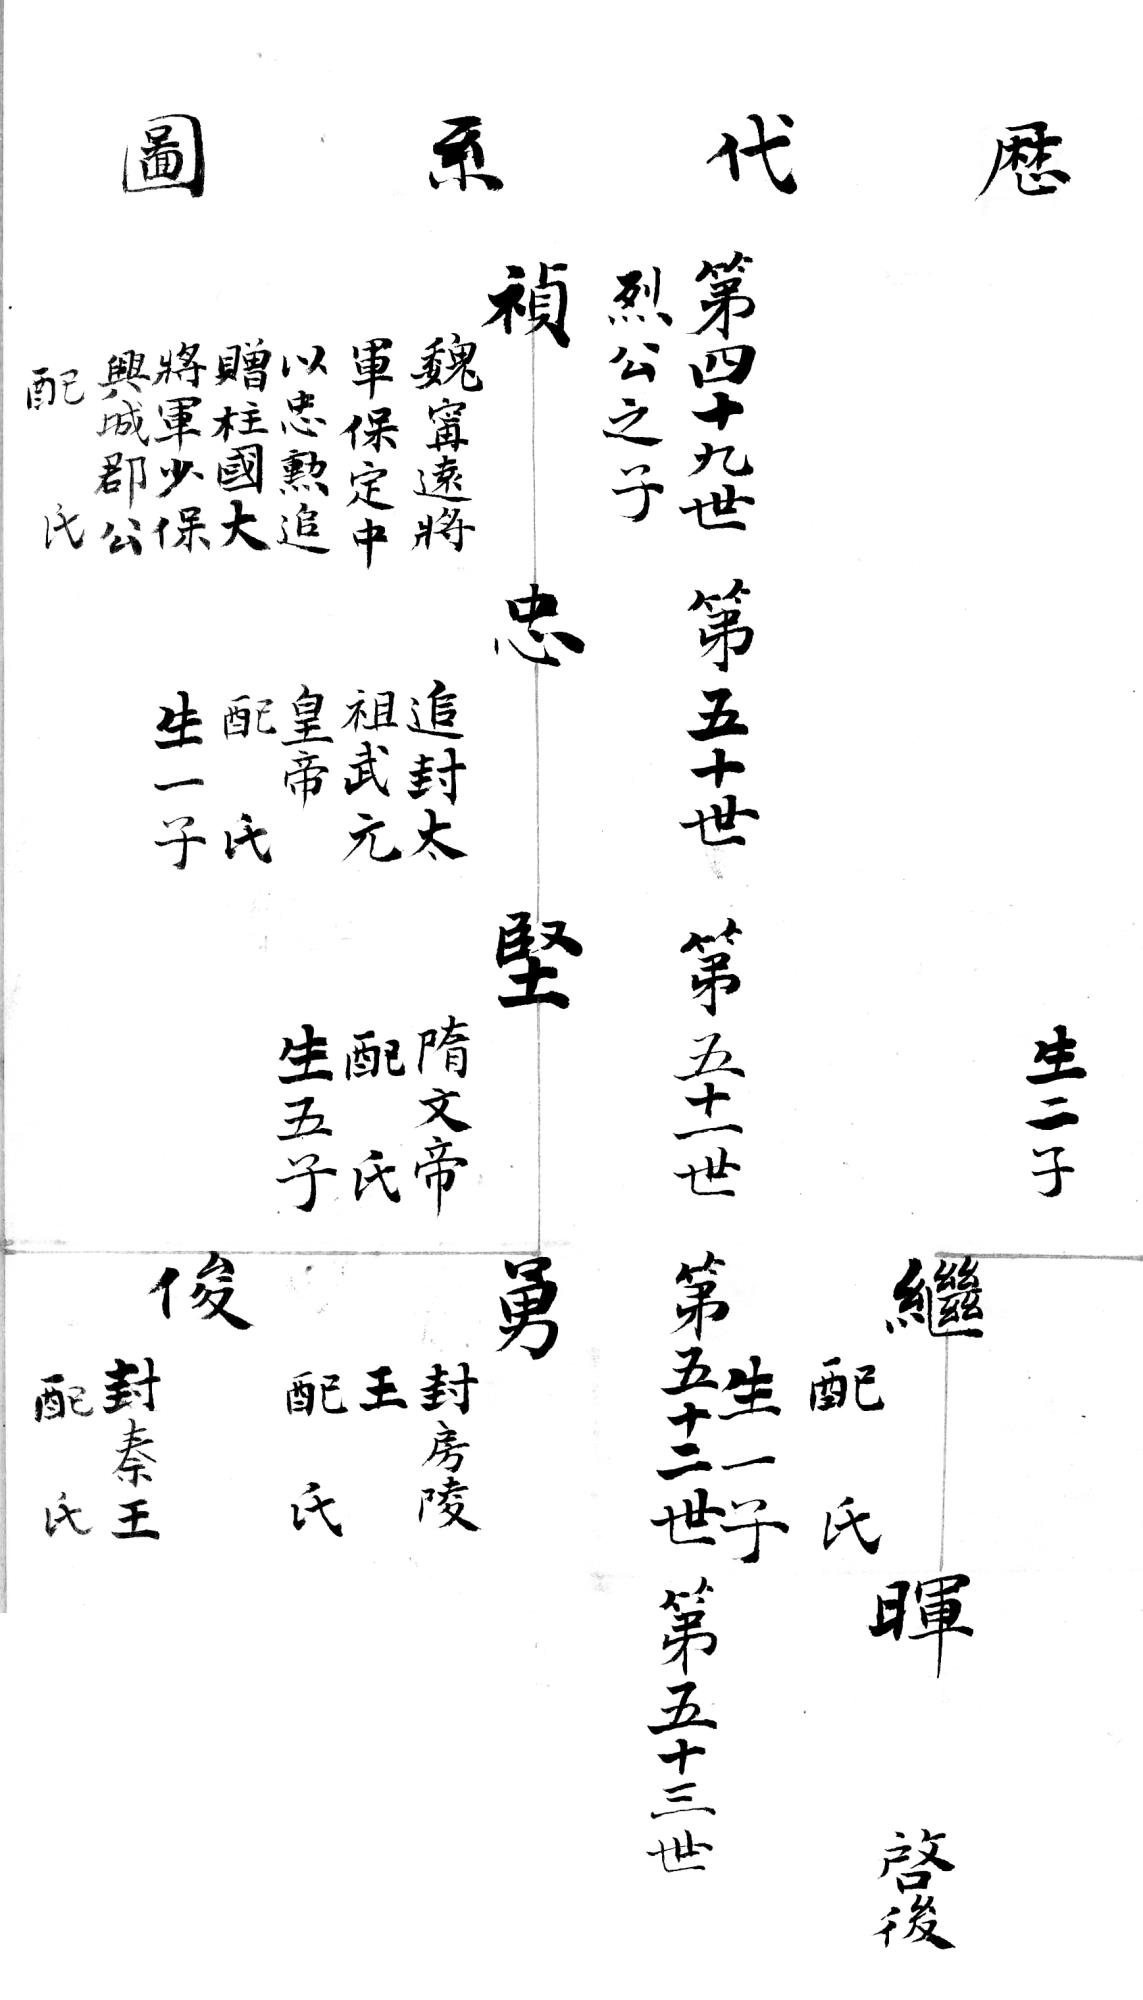 歷代系圖
生二子
繼
配 氏
生一子
暉
啓後
第四十九世
第五十世
第五十一世
第五十二世
第五十三世
烈公之子
禎
魏寗遠將
軍保定中
以忠勲追
贈柱國大
將軍少保
興城郡公
配 氏
忠
追封太
祖武元
皇帝
配 氏
生一子
堅
隋文帝
配 氏
生五子
勇
封房陵
王
配 氏
俊
封秦王
配 氏